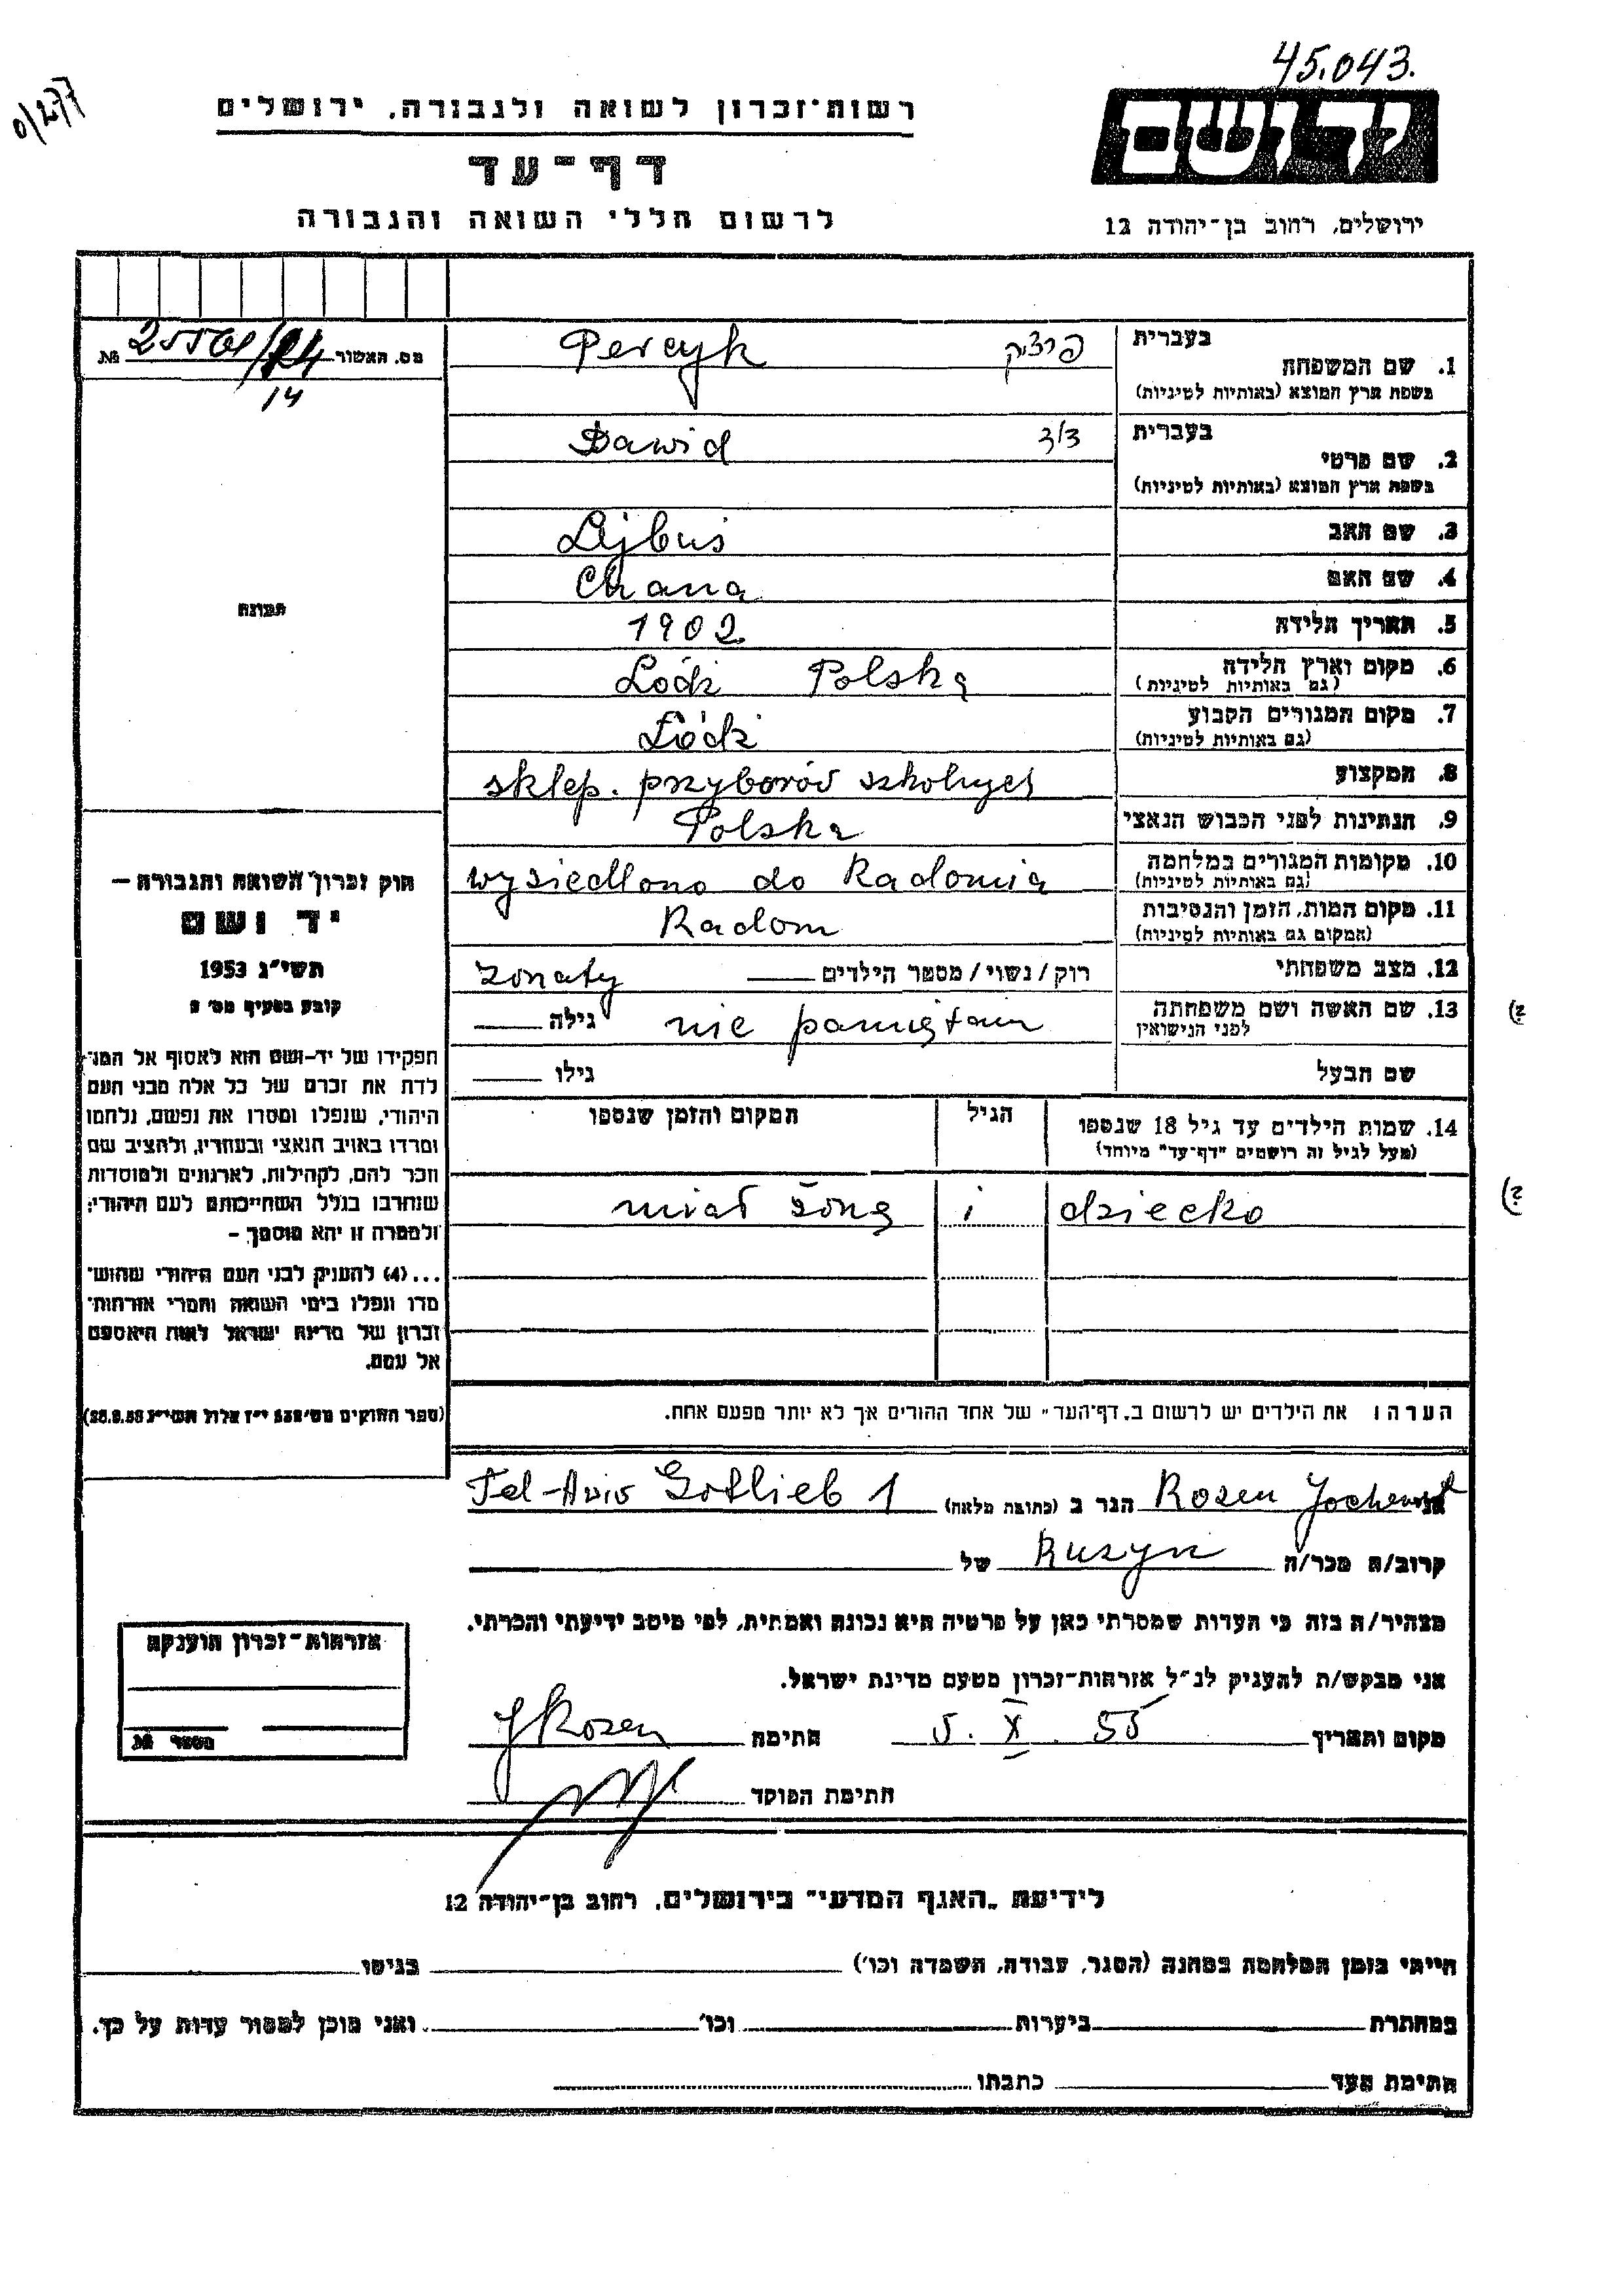 45.043.
רשות־זכרון לשואה ולגבורה, ירושלים
יד ושם
דף־עד
לרשום חללי השואה והגבורה
ירושלים, רחוב בן־יהודה 12
מס. האשור №
14
בעברית
1. שם המשפחה
בשפת ארץ המוצא (באותיות לטיניות)
פרציק
Percyk
בעברית
2. שם פרטי
בשפת ארץ המוצא (באותיות לטיניות)
דוד
Dawid
3. שם האב Lejbuś
4. שם האם Chana
5. תאריך הלידה 1902
6. מקום וארץ הלידה Łódź Polska
(גם באותיות לטיניות)
7. מקום המגורים הקבוע Łódź
(גם באותיות לטיניות)
8. המקצוע sklep. przyborów szkolnych
9. הנתינות לפני הכבוש הנאצי Polska
10. מקומות המגורים במלחמה wysiedlono do Radomia
(גם באותיות לטיניות)
11. מקום המות, הזמן והנסיבות Radom
(המקום גם באותיות לטיניות)
12. מצב משפחתי רוק/נשוי/מספר הילדים żonaty
13. שם האשה ושם משפחתה nie pamiętam גילה
לפני הנישואין
שם הבעל גילו
14. שמות הילדים עד גיל 18 שנספו הגיל המקום והזמן שנספו
(מעל לגיל זה רושמים "דף־עד" מיוחד)
miał żonę i dziecko
הערה: את הילדים יש לרשום ב„דף־העד" של אחד ההורים אך לא יותר מפעם אחת.
תמונה
חוק זכרון השואה והגבורה –
יד ושם
תשי"ג 1953
קובע בסעיף מס' 2
תפקידו של יד־ושם הוא לאסוף אל המו־
לדת את זכרם של כל אלה מבני העם
היהודי, שנפלו ומסרו את נפשם, נלחמו
ומרדו באויב הנאצי ובעוזריו, ולהציב שם
וזכר להם, לקהילות, לארגונים ולמוסדות
שנחרבו בגלל השתייכותם לעם היהודי;
ולמטרה זו יהא מוסמך –
...(4) להעניק לבני העם היהודי שהוש־
מדו ונפלו בימי השואה והמרי אזרחות־
זכרון של מדינת ישראל לאות היאספם
אל עמם.
(ספר החוקים מס' 132 י"ז אלול תשי"ג 28.8.53)
אני Rosen הגר ב (כתובת מלאה) Tel-Aviv Gotlieb 1
קרוב/ה מכר/ה Kuzyn של
מצהיר/ה בזה כי העדות שמסרתי כאן על פרטיה היא נכונה ואמתית, לפי מיטב ידיעתי והכרתי.
אני מבקש/ת להעניק לנ"ל אזרחות־זכרון מטעם מדינת ישראל.
מקום ותאריך 5. X. 55 חתימה JRosen
חתימת הפוקד
אזרחות־זכרון הוענקה
מספר №
לידיעת „האגף המדעי" בירושלים, רחוב בן־יהודה 12
הייתי בזמן המלחמה במחנה (הסגר, עבודה, השמדה וכו') בגיטו
במחתרת ביערות וכו' ואני מוכן למסור עדות על כך.
חתימת העד כתבתו